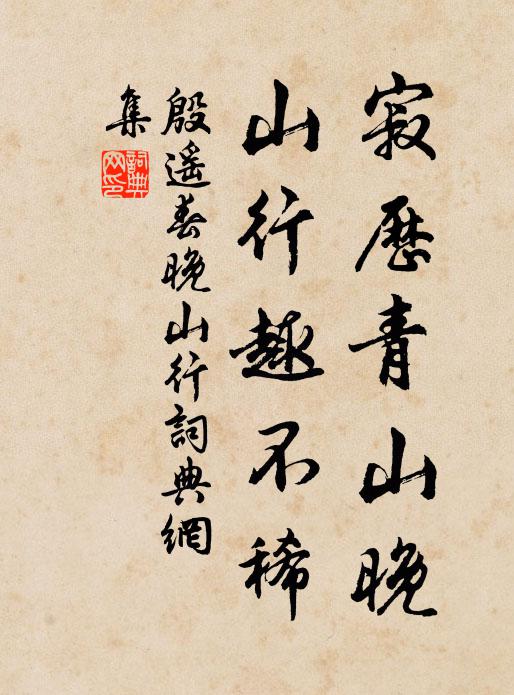 寂歷青山晚
山行趣不稀
殷遥春晚山行詞典網
集
詞典
网印